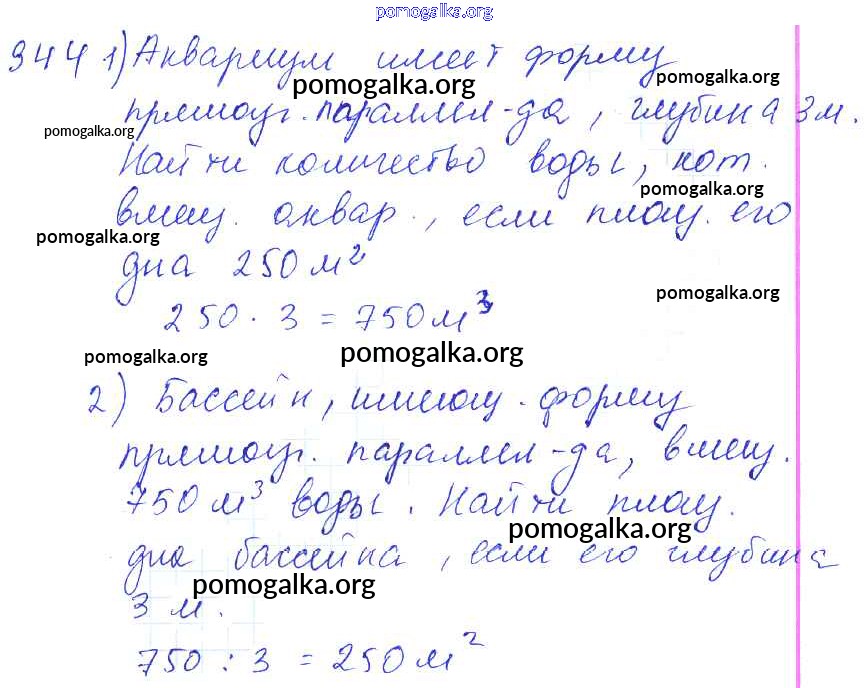 pomogalka.org
944 1) Аквариум имеет форму
pomogalka.org pomogalka.org
прямоуг. параллел-да, глубина 3 м.
pomogalka.org
Найти количество воды, кот.
pomogalka.org
вмещ. аквар., если площ. его
pomogalka.org
дна 250 м²
pomogalka.org
250 · 3 = 750 м³
pomogalka.org pomogalka.org
2) Бассейн, имеющ. форму
прямоуг. параллел-да, вмещ.
750 м³ воды. Найти площ.
pomogalka.org
дна бассейна, если его глубина
pomogalka.org
3 м.
750 : 3 = 250 м²